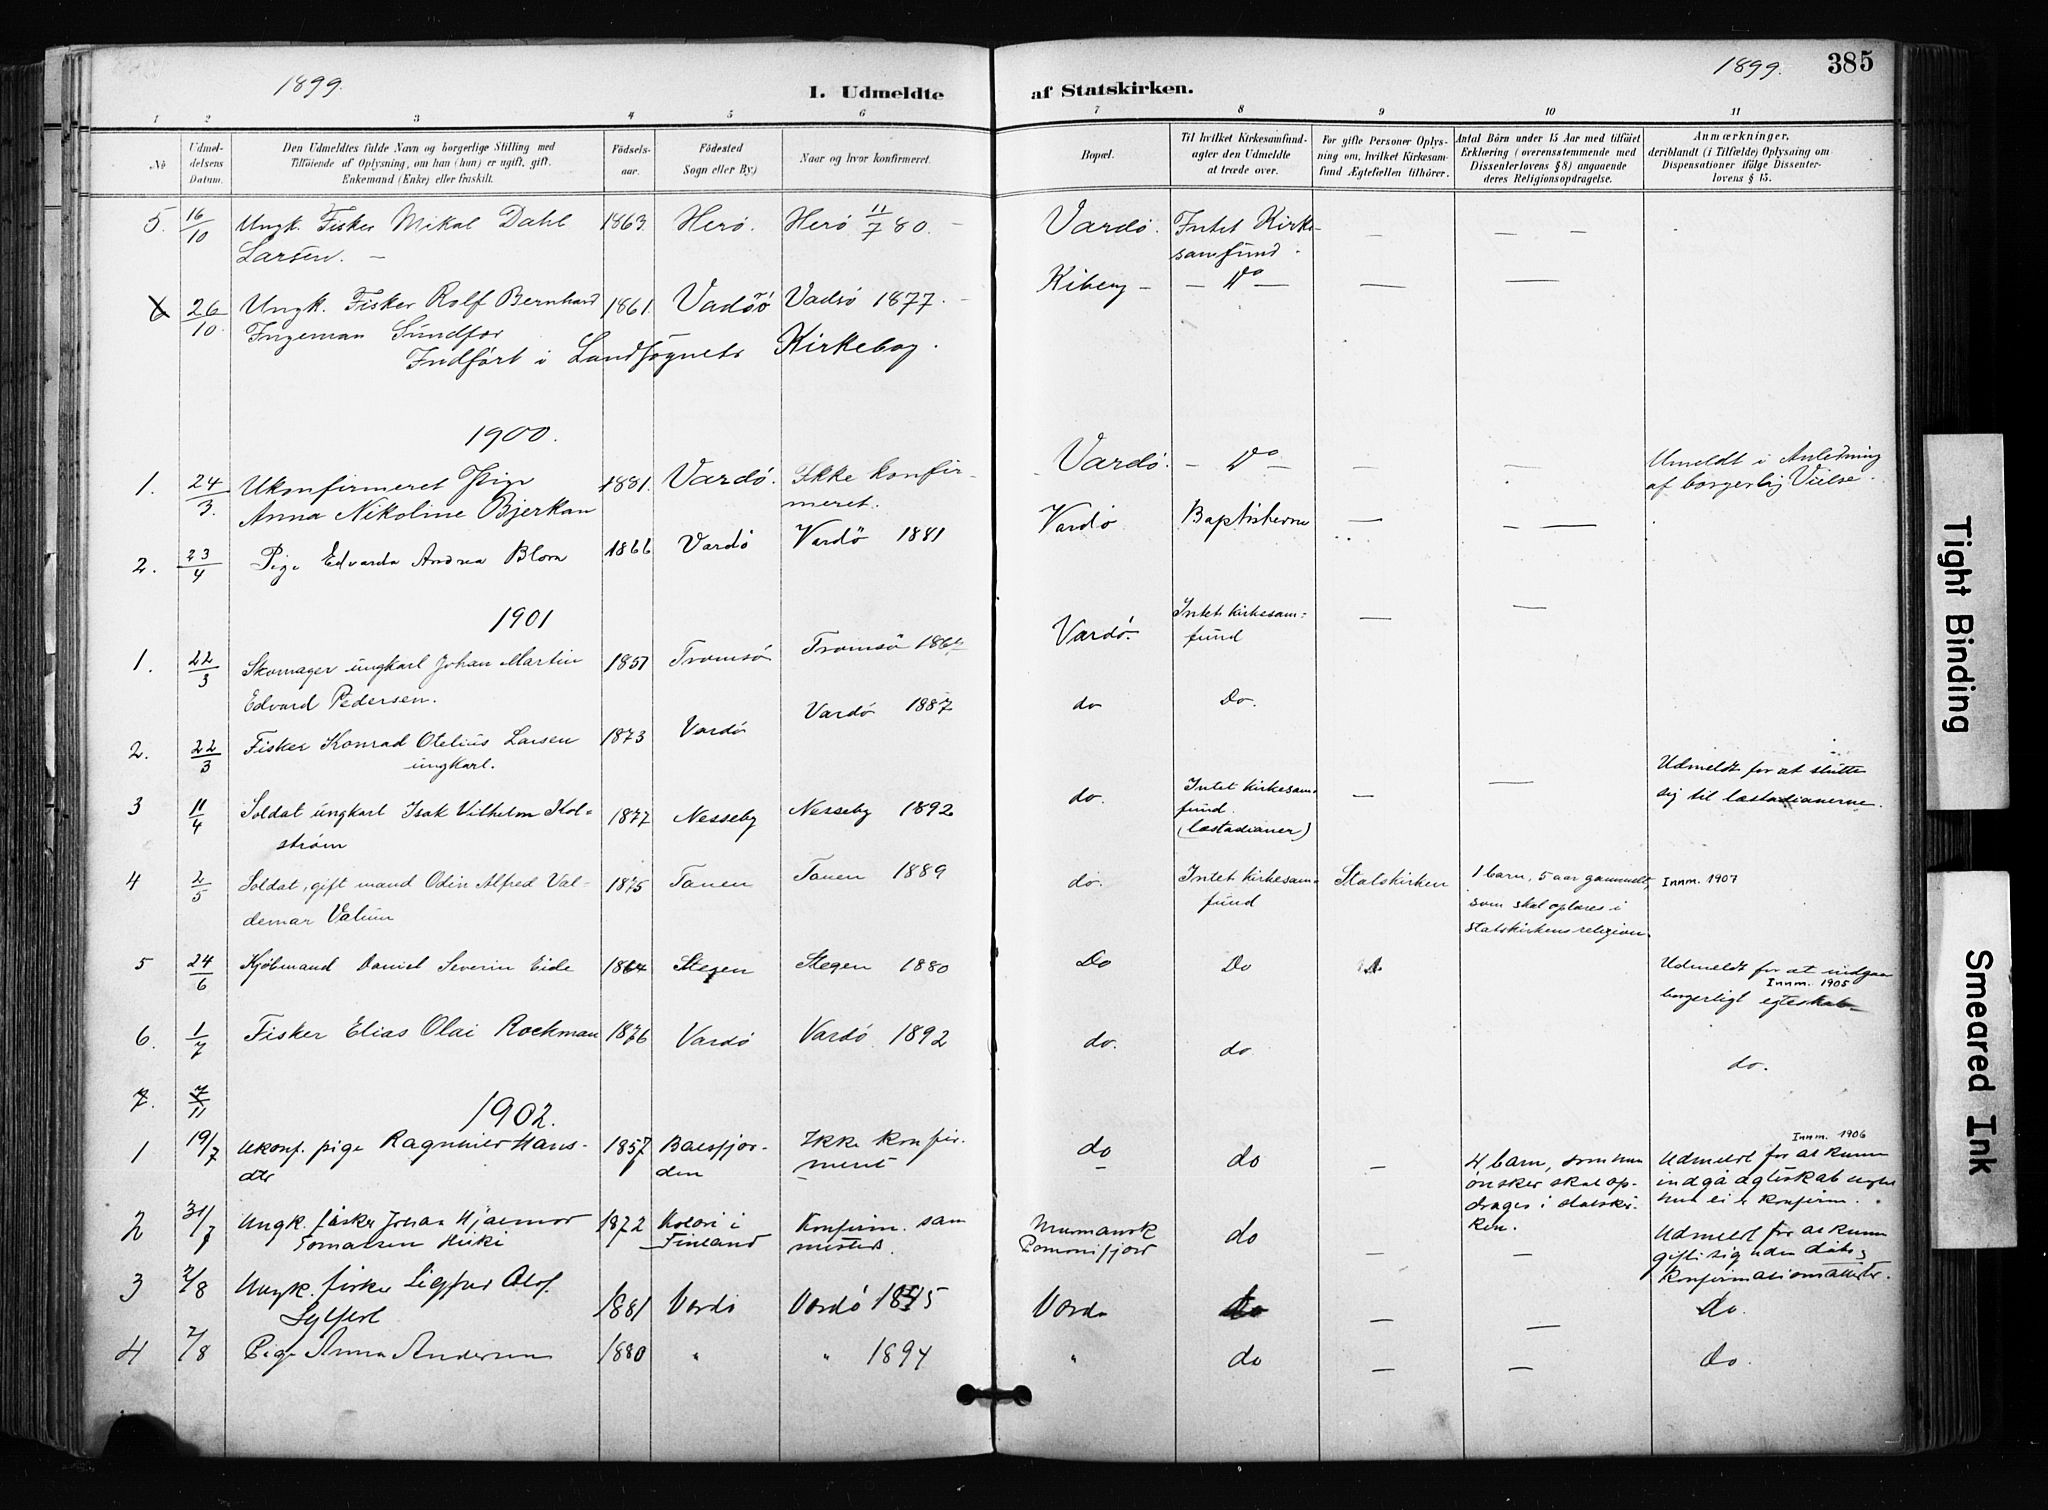 1899.
I. Udmeldte
af Statskirken.
1899.
385
1 2 3 4 5 6 7 8 9 10 11
No
Udmel-
delsens
Datum.
Den Udmeldtes fulde Navn og borgerlige Stilling med
Tilføiende af Oplysning, om han (hun) er ugift, gift,
Enkemand (Enke) eller fraskilt.
Fødsels-
aar.
Fødested
Sogn eller By.)
Naar og hvor konfirmeret.
Bopæl.
Til hvilket Kirkesamfund-
agter den Udmeldte
at træde over.
For gifte Personer Oplys-
ning om, hvilket Kirkesam-
fund Ægtefællen tilhører.
Antal Børn under 15 Aar med tilføiet
Erklæring (overensstemmende med
Dissenterlovens § 8) angaaende
deres Religionsopdragelse.
Anmærkninger,
deriblandt (i Tilfælde) Oplysning om
Dispensationer ifølge Dissenter-
lovens § 15.
5. 16/10 Ungk. Fisker Mikal Dahl 1863. Herö. Herö 11/7 80. – Vardö. Intet Kirke- — — —
Larsen. – samfund.
6 26/10. Ungk. Fisker Rolf Bernhard 1861. Vadsö Vadsö 1877. – Kiberg – – Do – — —
Ingeman Sundfær
Indført i Landsognets Kirkebog.
1900.
1. 24/3. Ukonfirmeret Pige 1881. Vardö. Ikke konfir- Vardö. – Do – — — Umeldt i Anledning
Anna Nikoline Bjerkan meret. af borgerlig Vielse.
2. 23/4 Pige Edvarda Andrea Blom 1866 Vardö Vardö 1881 Vardö Baptisterne — – —
1901
1. 22/3 Skomager ungkarl Johan Martin 1851 Tromsö Tromsö 1867 Vardö. Intet kirkesam= — —
Edvard Pedersen. fund
2. 22/3 Fisker Konrad Otelius Larsen 1873 Vardö Vardö 1887 do Do.
ungkarl.
3 11/4 Soldat ungkarl Isak Vilhelm Kol- 1877 Nesseby Nesseby 1892 do. Intet kirkesam= — — Udmeldt for at slutte
ström fund. sig til læstadianerne.
(læstadianer)
4 2/5 Soldat, gift mand Odin Alfred Val- 1875 Tanen Tanen 1889 do. Intet kirkesam= Statskirken 1 barn, 5 aar gammelt, Innm. 1907
demar Valum fund som skal oplæres i
statskirkens religion.
5 24/6 Kjøbmand Daniel Severin Eide 1864 Stegen Stegen 1880 Do Do D. Udmeldt for at indgaa
Innm. 1905
borgerligt egteskab
6. 1/7 Fisker Elias Olai Rockman 1876 Vardö Vardö 1892 do. do do.
7. 7/11
1902.
1 19/7 Ukonf. pige Ragnhild Hans- 1857 Balsfjor- Ikke konfir- do do – 4 barn, som hun Innm. 1906
dtr den meret ønsker skal op- Udmeldt for at kunne
drages i statskir- indgå ægteskab
ken. hun ei er konfirm.
2 31/7 Ungk. fisker Johan Hjalmar 1872 Kolari i Konfirm. sam Murmansk do – – Udmeldt for at kunne
Tomassen Heiki Finland mesteds. gifte sig uden dåbs &
konfirmationsattester.
3 2/8 Ungk. fisker Olof. 1881 Vardö Vardö 1895 Vardö Do – – Do.
4 2/8 Pige Anna Andersen 1880 " " 1894 " do – – do.
Tight Binding
Smeared Ink